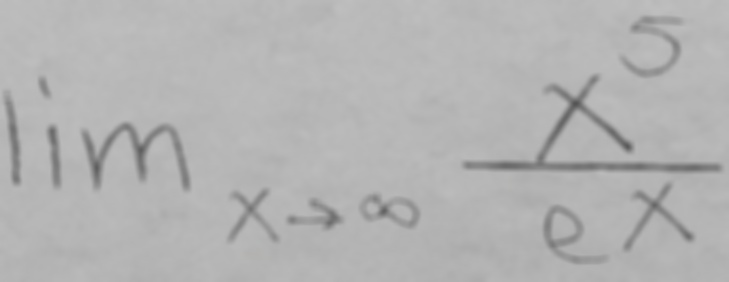 lim x→∞ x^5/e^x